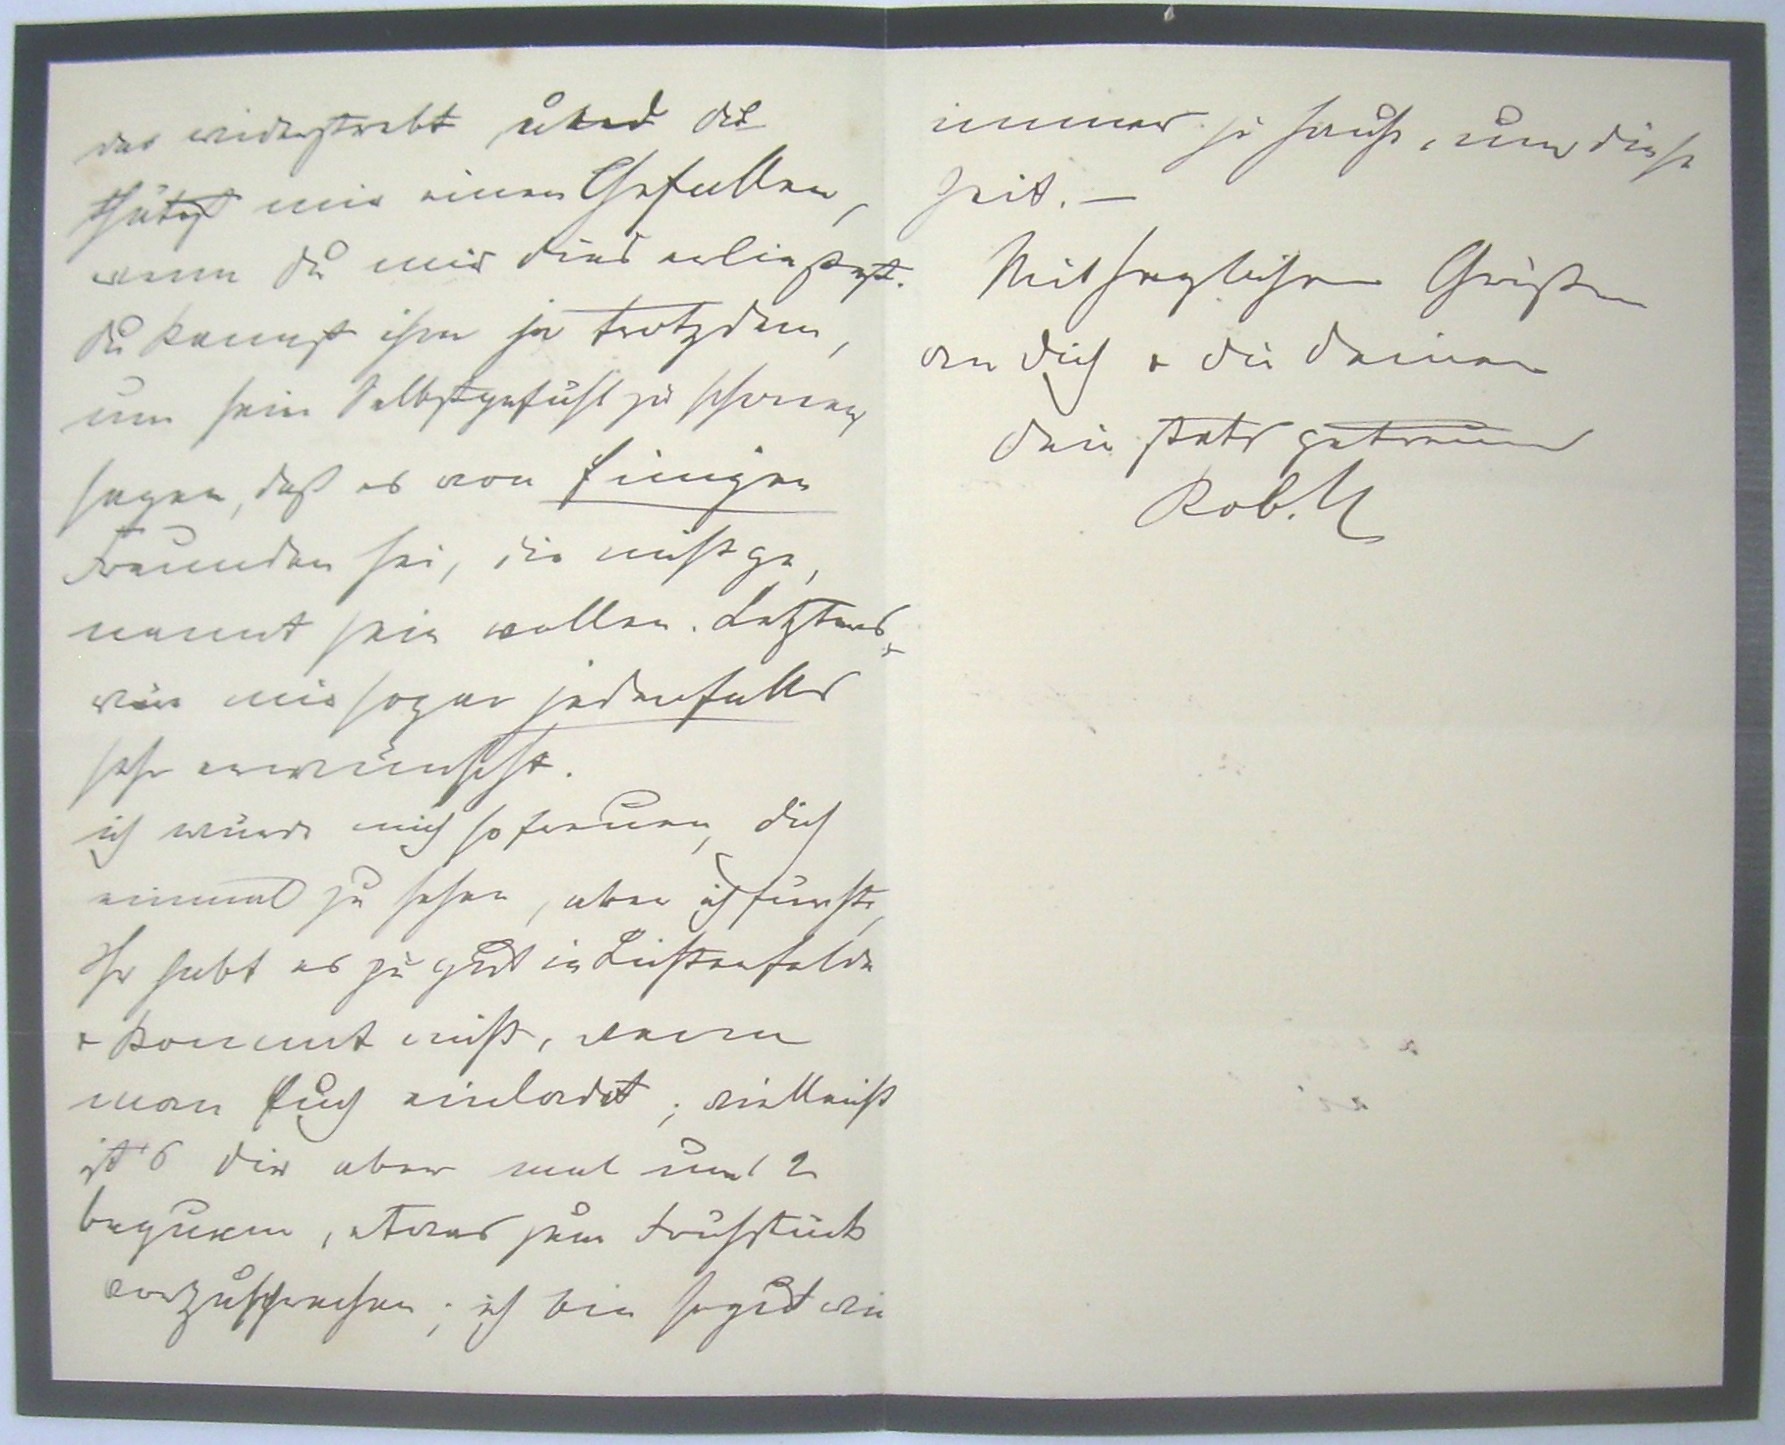 das widerstrebt und du
thätest mir einen Gefallen,
wenn du mir dies erließest.
du kannst ihm ja trotzdem,
um sein Selbstgefühl zu schonen
sagen, daß es von Einigen
Freunden sei, die nicht ge,
nannt sein wollen. Letzteres
wär mir sogar jedenfalls
sehr erwünscht.
ich würde mich so freuen, dich
einmal zu sehen, aber ich fürchte,
Ihr habt es zu gut in Lichterfelde
+ kommt nicht, wenn
man Euch einladet; vielleicht
ist's dir aber mal um 2
bequem, etwas zum Frühstück
vorzusprechen; ich bin so gut wie
immer zu Hause, um diese
Zeit. –
Mit herzlichen Grüßen
an dich + die deinen
dein stets getreuer
Rob.